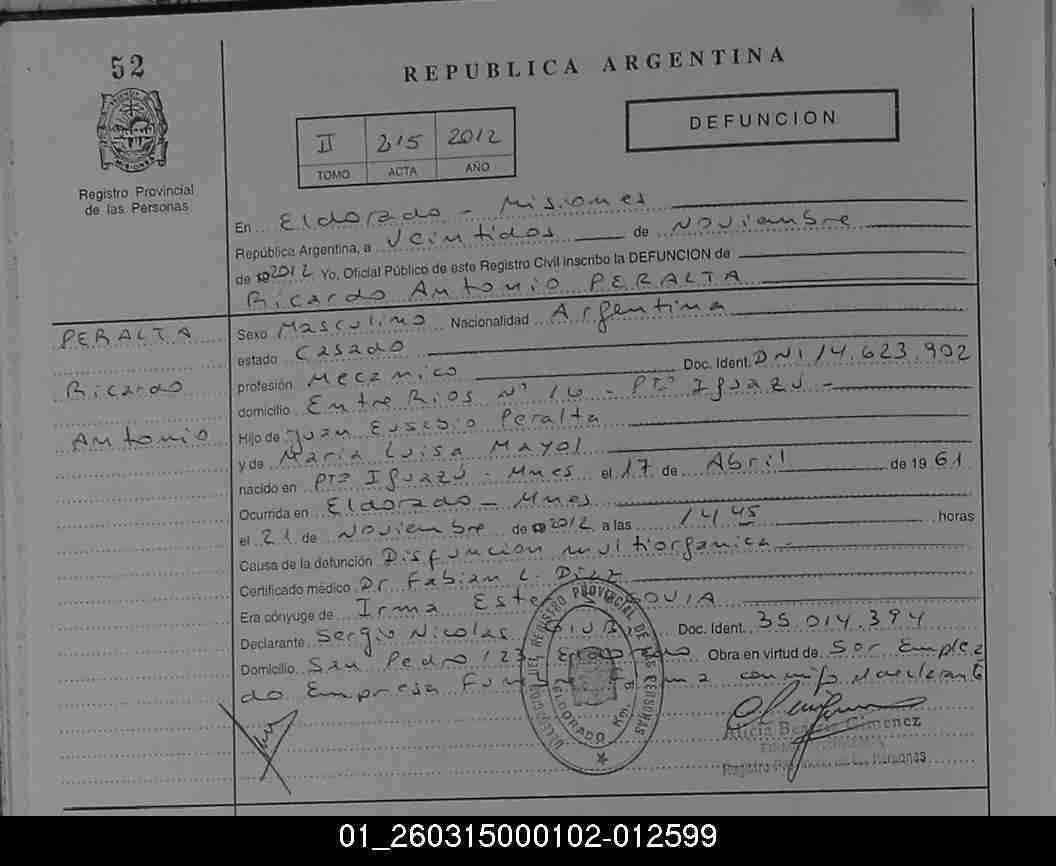 52
REPUBLICA ARGENTINA
DEFUNCION
II 215 2012
TOMO ACTA AÑO
Registro Provincial
de las Personas
En Eldorado - Misiones
República Argentina, a Veintidos de Noviembre
de 2012 Yo, Oficial Público de este Registro Civil inscribo la DEFUNCION de
Ricardo Antonio PERALTA
PERALTA
Ricardo
Antonio
Sexo Masculino Nacionalidad Argentina
estado Casado
profesión Mecanico Doc. Ident. DNI 14.623.902
domicilio Entre Rios Nº 16 - Pto Iguazú -
Hijo de Juan Eusebio Peralta
y de Maria Luisa MAYOL
nacido en Pto Iguazú - Mnes el 17 de Abril de 1961
Ocurrida en Eldorado - Mnes
el 21 de Noviembre de 2012 a las 14 45 horas
Causa de la defunción Disfuncion multiorganica -
Certificado médico Dr. Fabian L. Diaz
Era cónyuge de Irma
Declarante Sergio Nicolas Doc. Ident. 35.014.394
Domicilio San Pedro 123 Eldorado Obra en virtud de Ser Emplea
do Empresa
REGISTRO PROVINCIAL DE LAS PERSONAS
ELDORADO Km. 8
Alicia Gimenez
Registro de las Personas
01_260315000102-012599